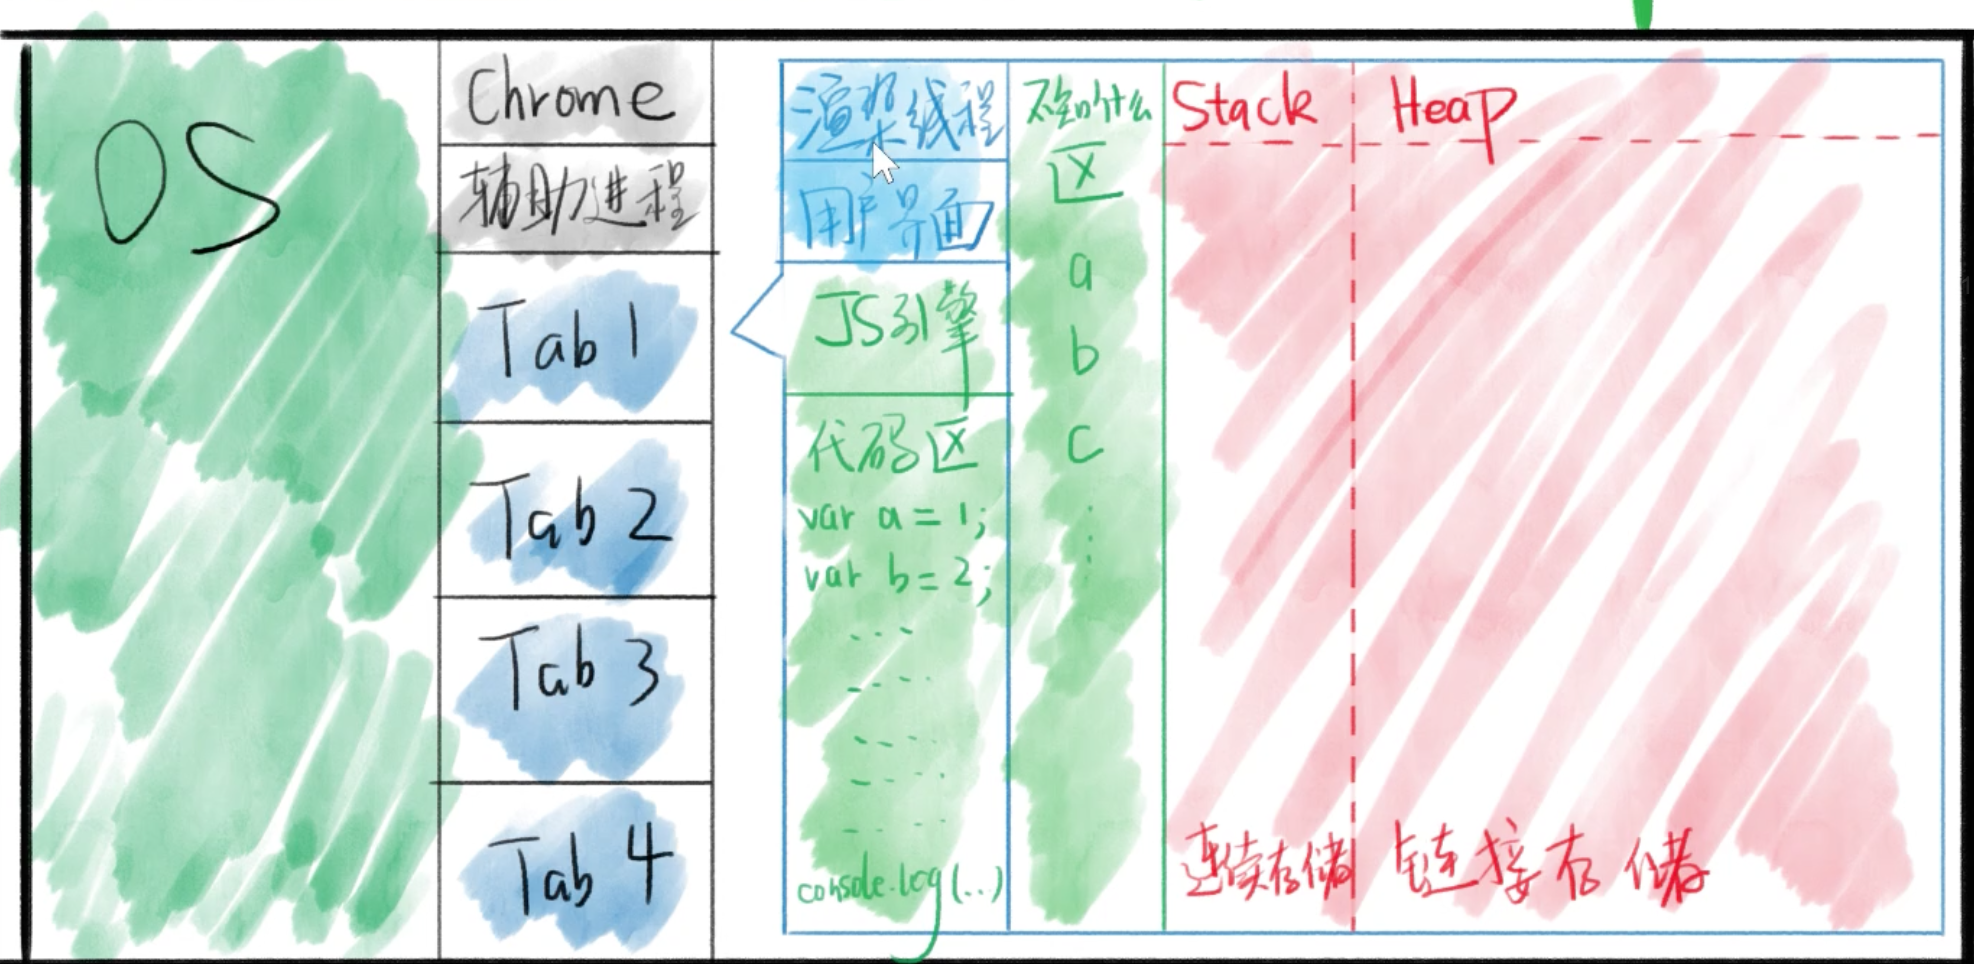 OS
Chrome
辅助进程
Tab 1
Tab 2
Tab 3
Tab 4
渲染线程
用户界面
JS引擎
代码区
var a = 1;
var b = 2;
console.log(...)
不知叫什么
区
a
b
c
Stack
连续存储
Heap
链接存储